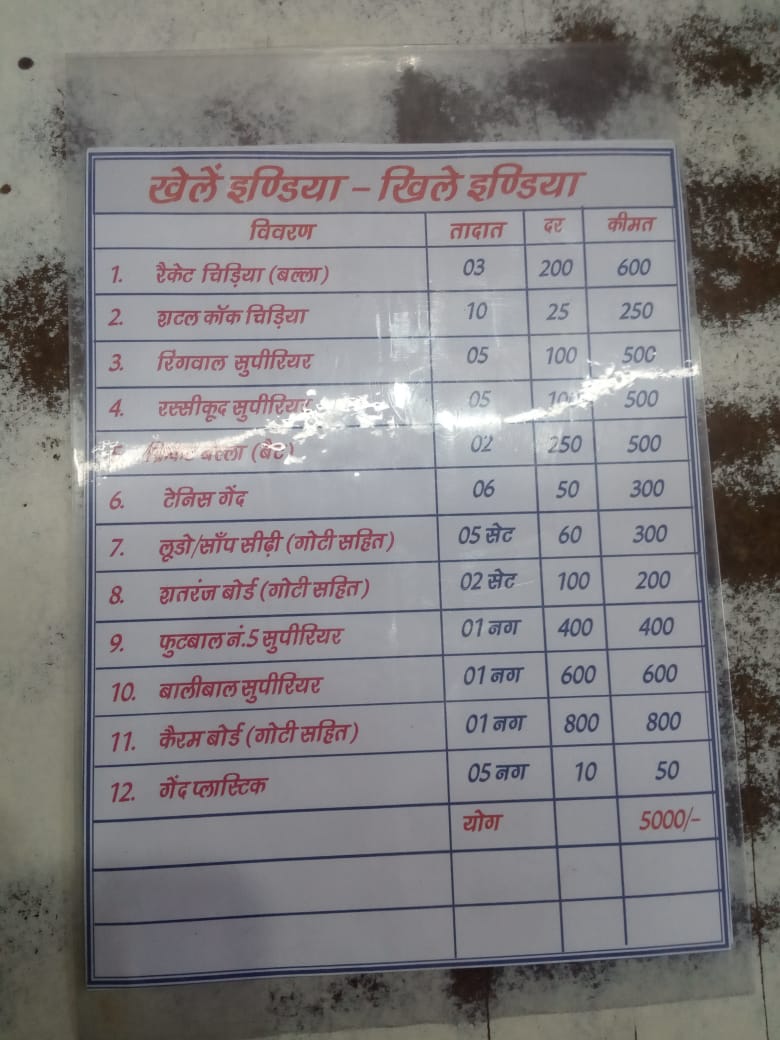 खेलें इण्डिया – खिले इण्डिया
विवरण तादात दर कीमत
1. रैकेट चिड़िया (बल्ला) 03 200 600
2. शटल कॉक चिड़िया 10 25 250
3. रिंगवाल सुपीरियर 05 100 500
4. रस्सीकूद सुपीरियर 05 100 500
5. बल्ला (बैट) 02 250 500
6. टेनिस गेंद 06 50 300
7. लूडो/साँप सीढ़ी (गोटी सहित) 05 सेट 60 300
8. शतरंज बोर्ड (गोटी सहित) 02 सेट 100 200
9. फुटबाल नं.5 सुपीरियर 01 नग 400 400
10. बालीबाल सुपीरियर 01 नग 600 600
11. कैरम बोर्ड (गोटी सहित) 01 नग 800 800
12. गेंद प्लास्टिक 05 नग 10 50
योग 5000/-